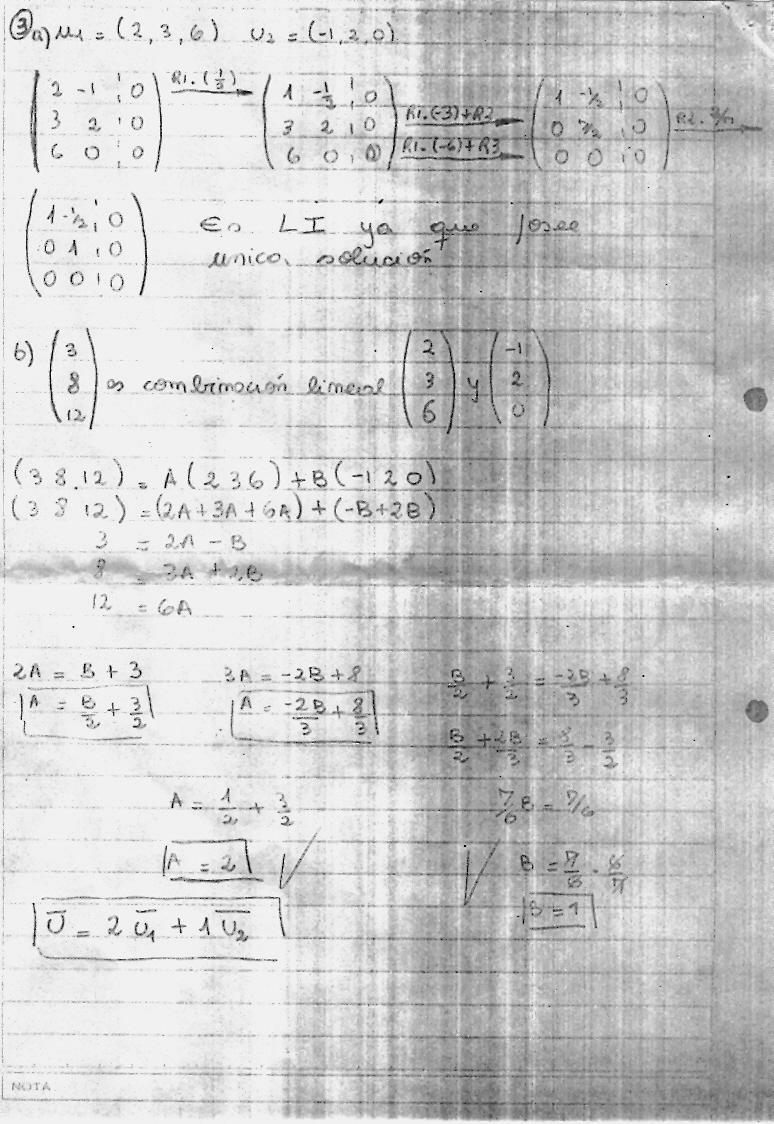 ③ a) u₁ = (2, 3, 6) U₂ = (-1, 2, 0)
2 -1 | 0 R1.(1/2) 1 -1/2 | 0 1 -1/2 | 0
3 2 | 0 3 2 | 0 R1.(-3)+R2 0 7/2 | 0 R2. 2/7
6 0 | 0 6 0 | 0 R1.(-6)+R3 0 0 | 0
1 -1/2 | 0 Es LI ya que posee
0 1 | 0 unica solución
0 0 | 0
b) (3 8 12) es combinación lineal (2 3 6) y (-1 2 0)
(3 8 .12) = A (2 3 6) + B (-1 2 0)
(3 8 12) = (2A+3A+6A) + (-B+2B)
3 = 2A - B
8 = 3A + 2B
12 = 6A
2A = B + 3 3A = -2B + 8 B/2 + 3/2 = -2B/3 + 8/3
A = B/2 + 3/2 A = -2B/3 + 8/3
B/2 + 2B/3 = 8/3 - 3/2
A = 1/2 + 3/2 7/6 B = 7/6
A = 2 B = 7/6 . 6/7
B = 1
U̅ = 2 U̅₁ + 1 U̅₂
NOTA